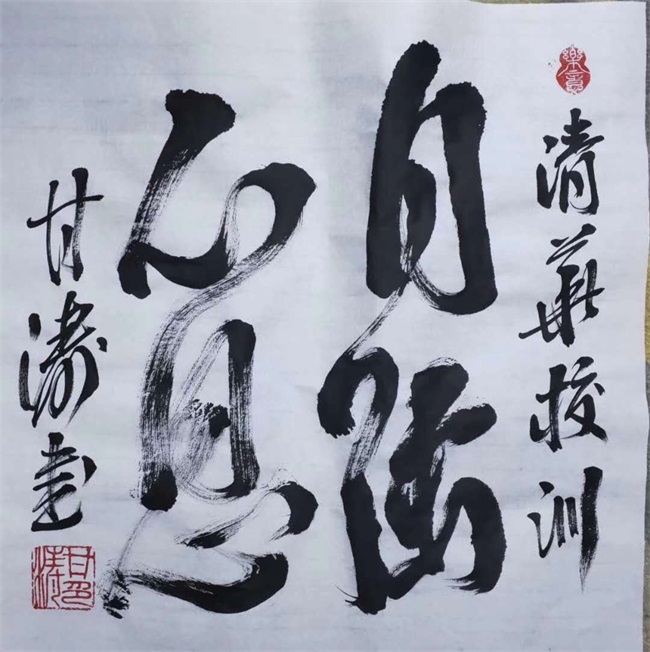 清華校训
自强
不息
甘涛書